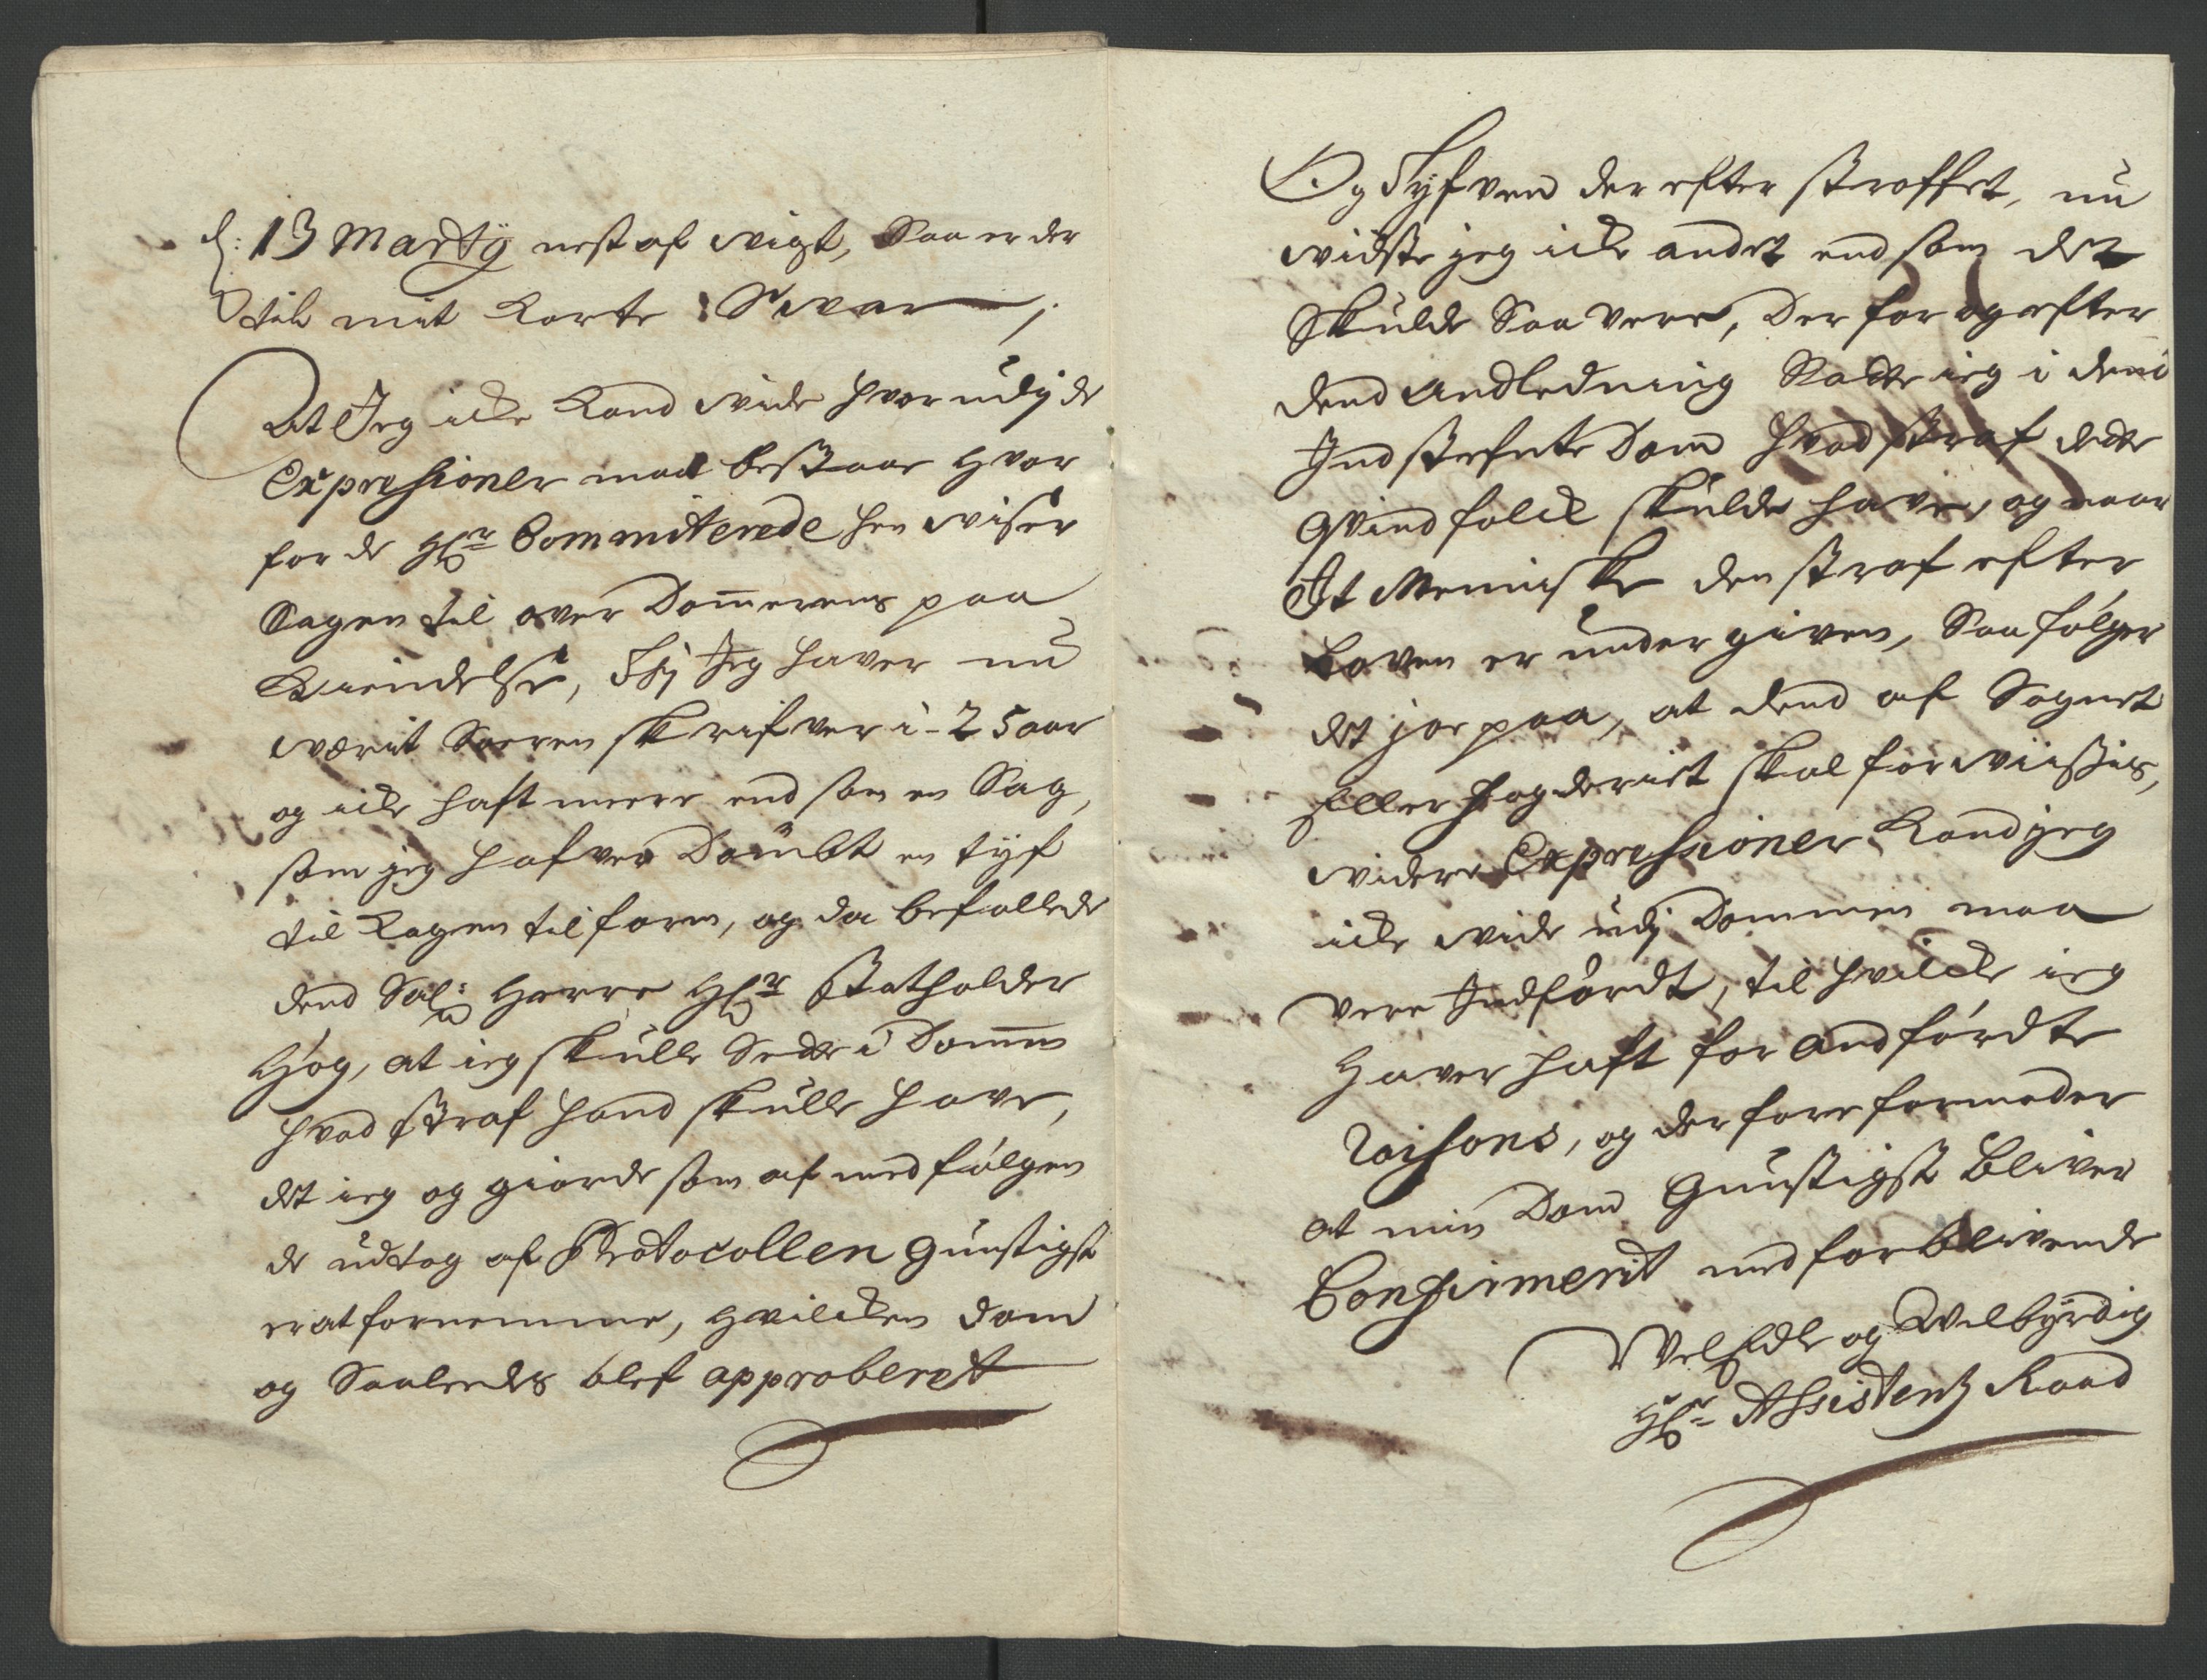 d: 13 Martÿ nest af vigt, Saa er der
til mit Korte Svar;
At Jeg icke Kand vide hvorudj de
Expressioner maa bestaae hvor
for de Hr: Committerede hen viser
Sagen til over Dommerens paa
Kiendelse, Thj Jeg haver nu
værit Soeren skrifver i 25 aar
og icke haft meere end som en Sag,
som jeg hafver Dømbt en tyf
til Kagen tilforn, og da befallede
dend Sal: Herre Hr: Statholder
Høg, at ieg skulle Sette i Dommen
hvad straf hand skulle have,
det ieg og giorde som af medfølgen
de udtog af Protocollen gunstigst
er at fornemme, hvilcken dom
og Saaleedes blef approberet
Og Tyfven der efter straffet, nu
vidste jeg icke andet end som det
Skulde Saa vere, Der for og efter
dend Andledning Satte ieg i den
Indstefnte Dom hvad straf dette
Qvindfolck skulde have, og naar
It Menniske den straf efter
Loven er undergiven, Saa følger
det jo paa, at dend af Sognet
Eller Fogderiet skal forviises,
videre Expressioner Kand jeg
icke vide udj Dommen maa
vere Indførdt, til hvilcke ieg
haver haft for andførdte
raisons, og derfore formoder
at min Dom Gunstigst bliver
Confirmerit med forblivende
VelEdle og Velbyrdig
Hr: Assistentz Raad